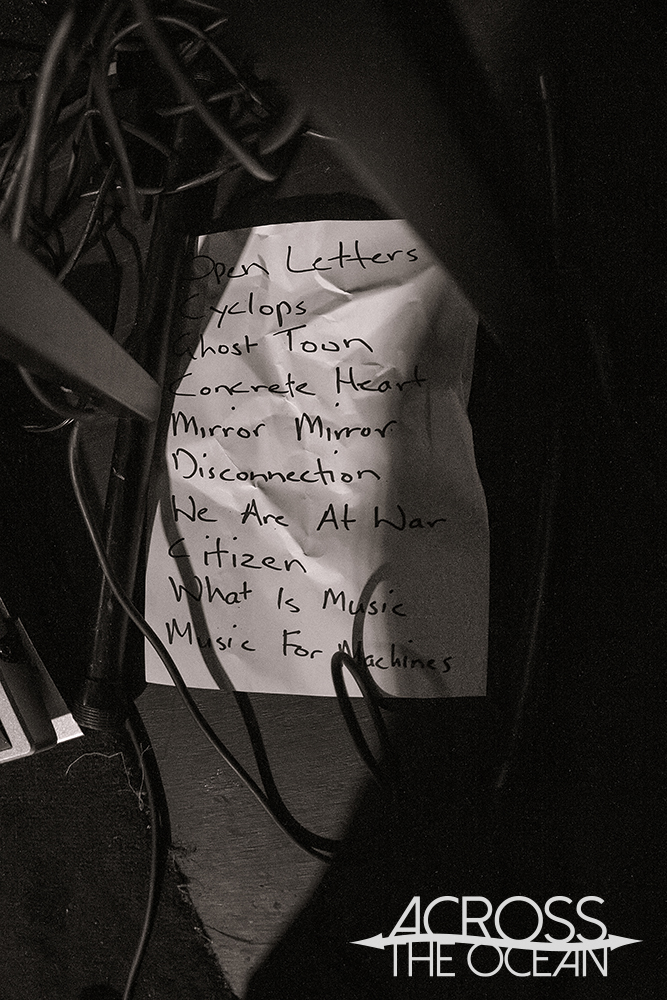 Open Letters
Cyclops
Ghost Town
Concrete Heart
Mirror Mirror
Disconnection
We Are At War
Citizen
What Is Music
Music For Machines
ACROSS
THE OCEAN